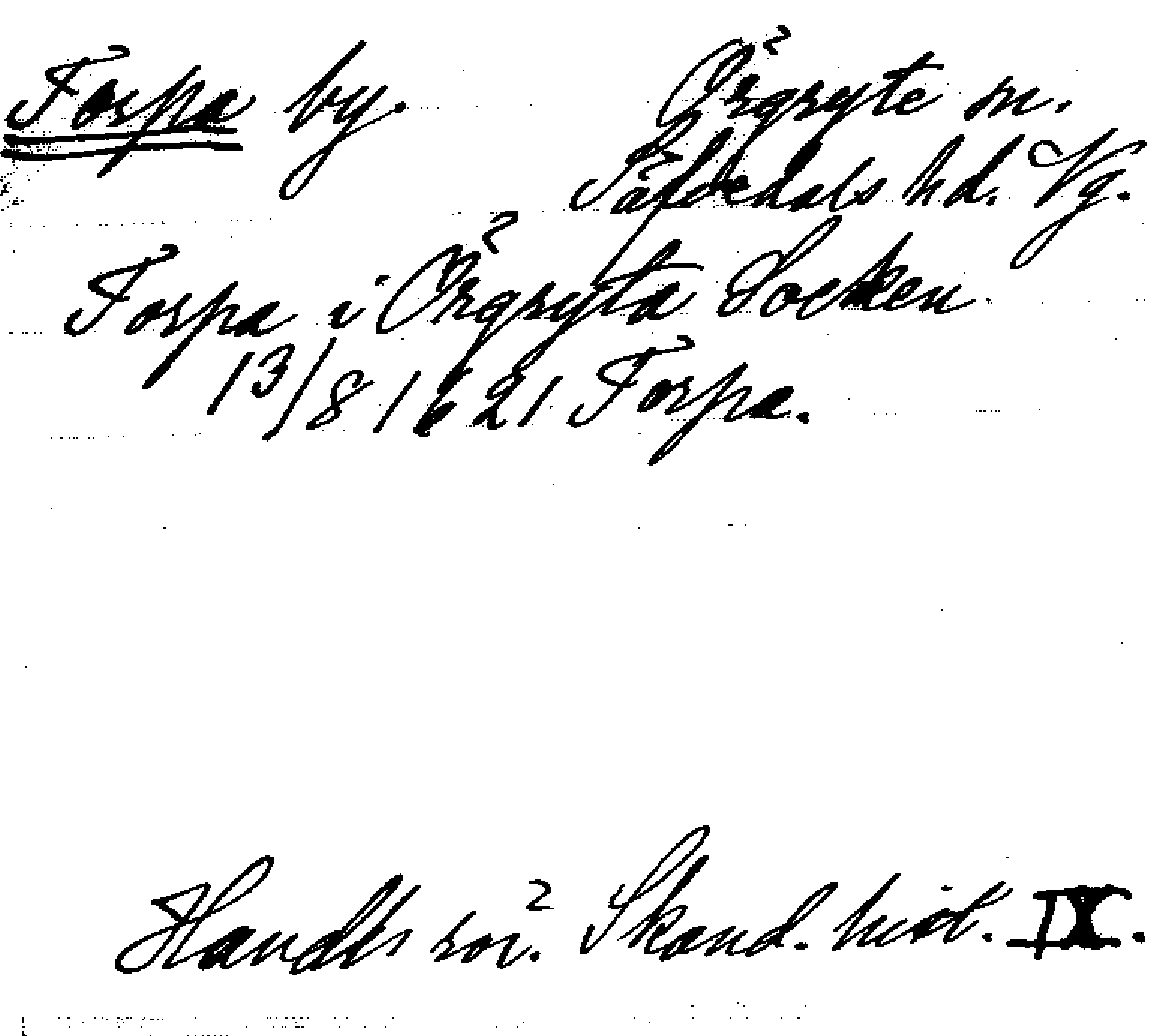 Torpa by. Örgryte sn.
Säfvedals hd. Vg.
Torpa i Örgryta Socken
13/8 1621 Torpa.
Handl:r rör. Skand. hist. IX.